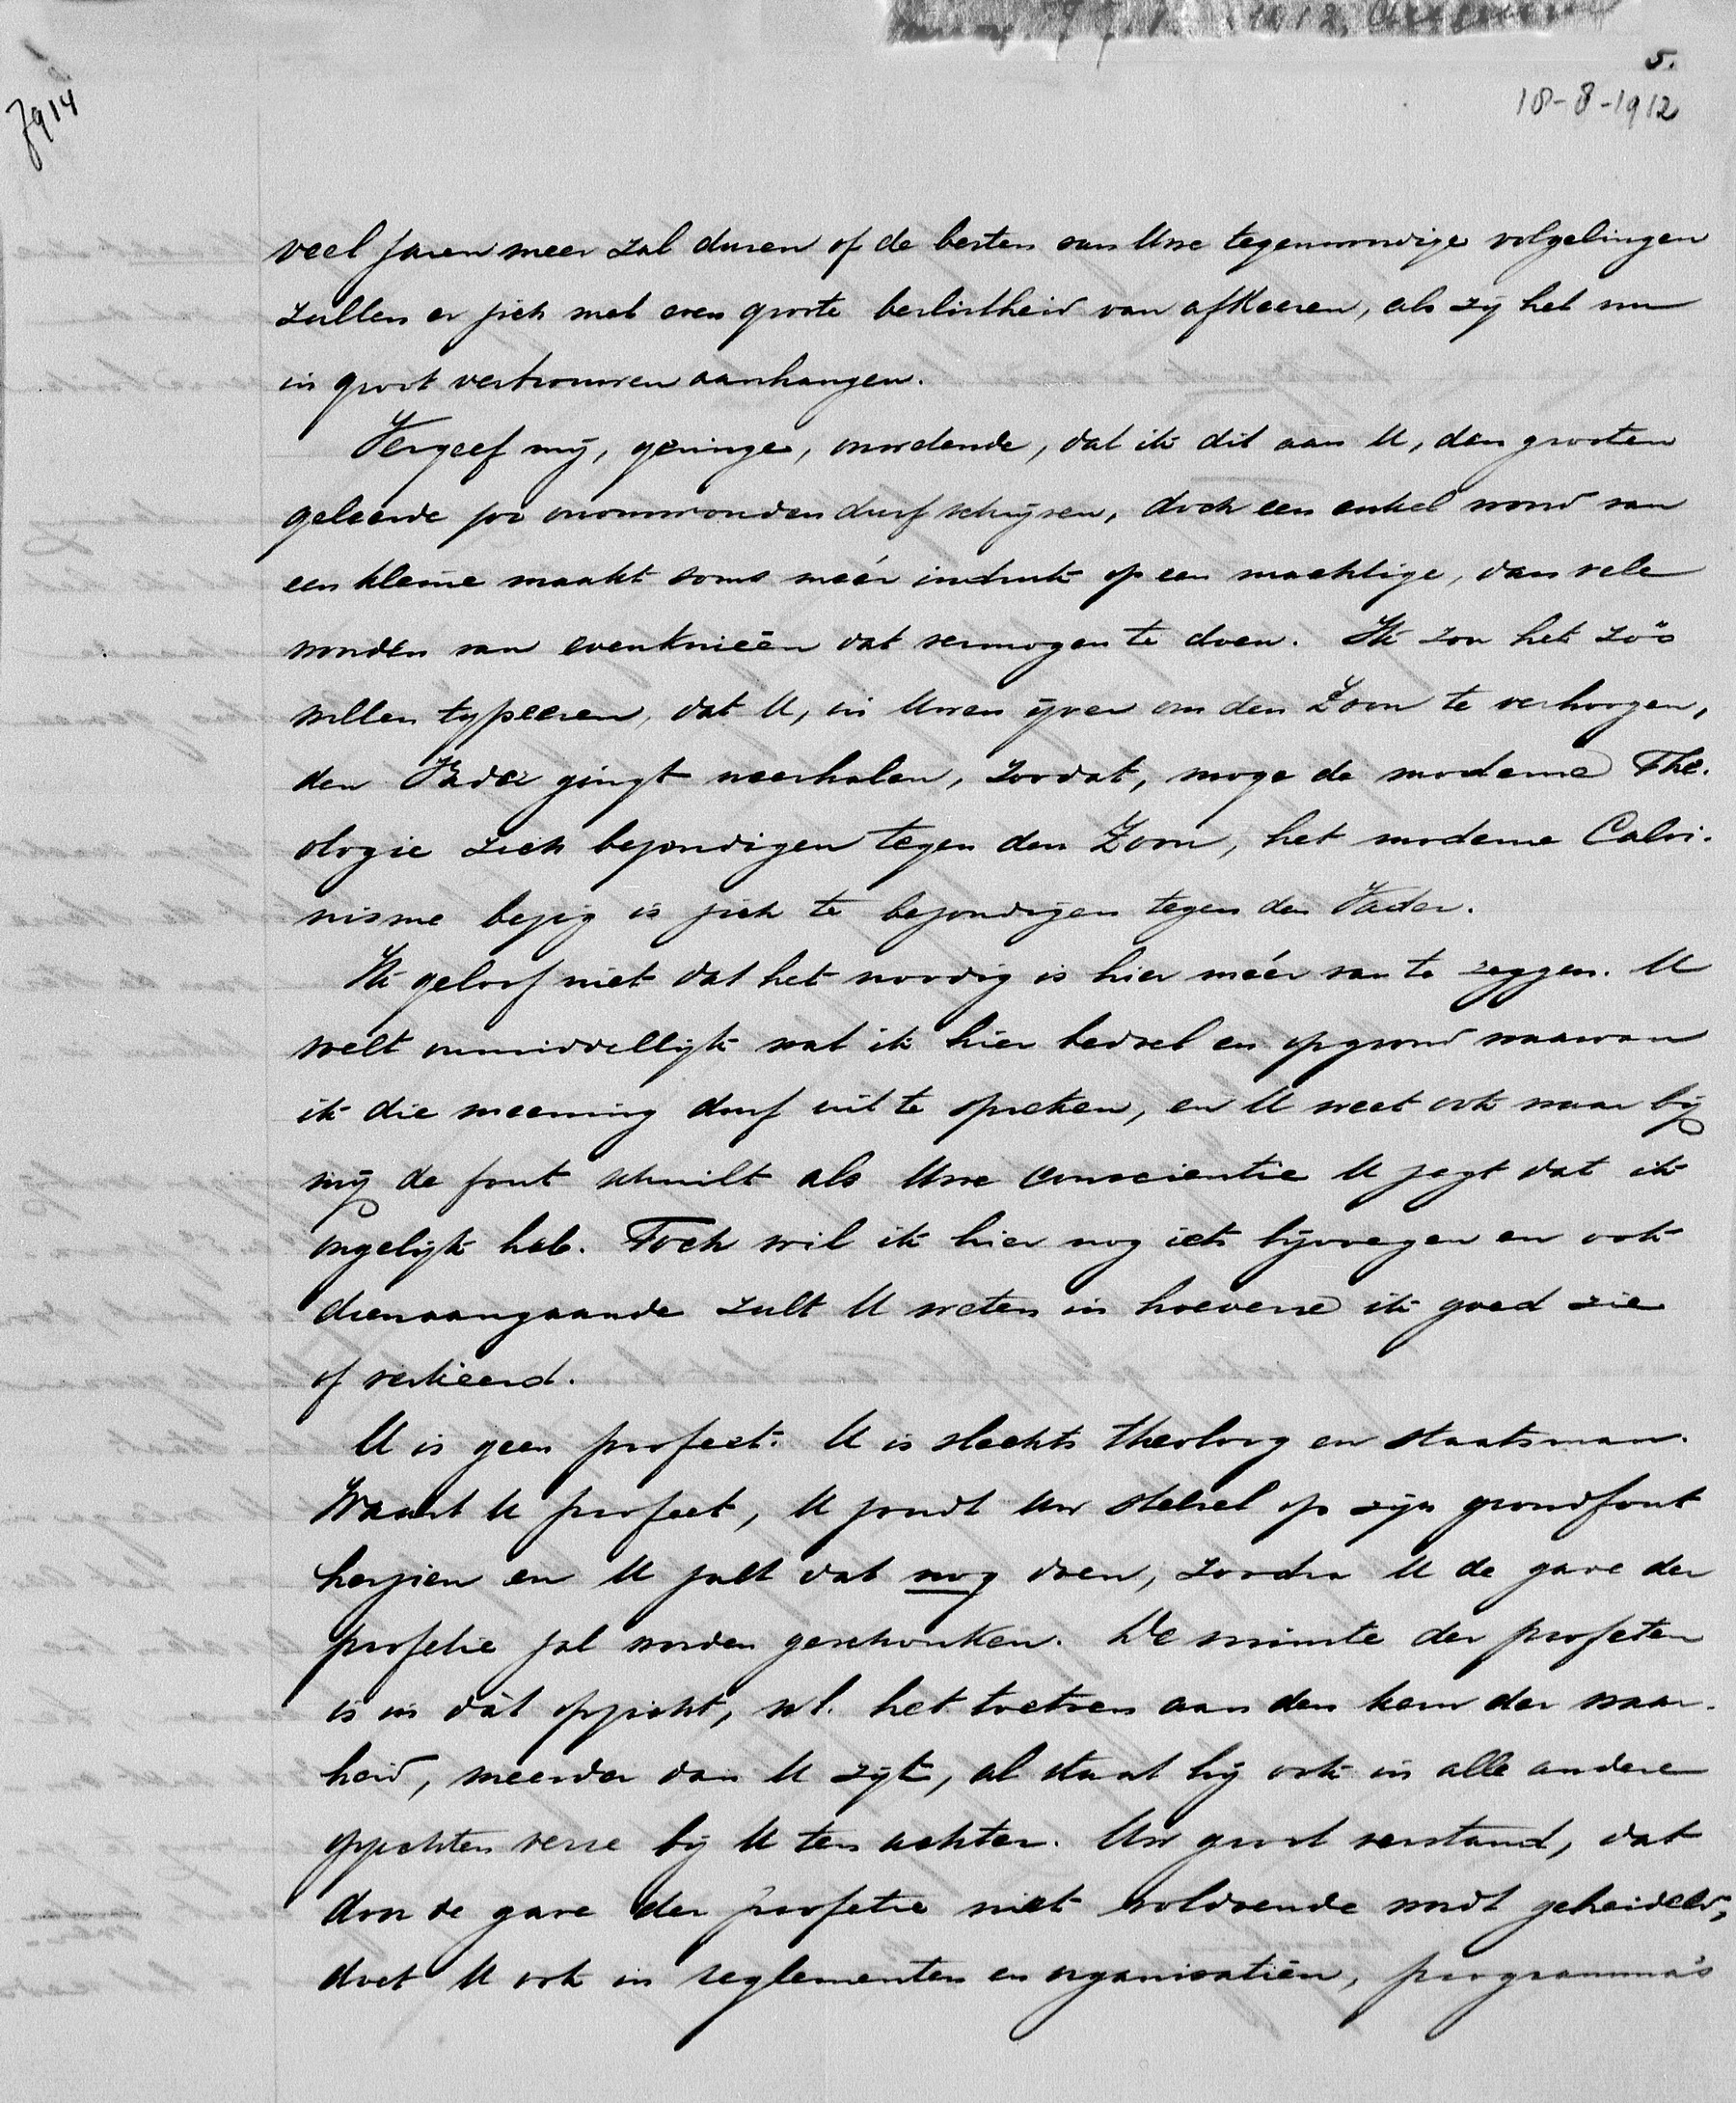 5.
18-8-1912
7914
veel jaren meer zal duren of de besten van Uwe tegenwoordige volgelingen
zullen er zich met even groote beslistheid van afkeeren, als zij het nu
in groot vertrouwen aanhangen.
Vergeef mij, geringe, onwetende, dat ik dit aan U, den grooten
geleerde zoo onomwonden durf schrijven, doch een enkel woord van
een kleine maakt soms meér indruk op een machtige, dan vele
woorden van evenknieën dat vermogen te doen. Ik zou het zóó
willen typeeren, dat U, in Uwen ijver om den Zoon te verhoogen,
den Vader gingt neerhalen, zoodat, moge de moderne The-
ologie zich bezondigen tegen den Zoon, het moderne Calvi-
nisme bezig is zich te bezondigen tegen den Vader.
Ik geloof niet dat het noodig is hier méér van te zeggen. U
weet onmiddellijk wat ik hier bedoel en op grond waarvan
ik die meening durf uit te spreken, en U weet ook waar bij
mij de fout schuilt als Uwe conscientie U zegt dat ik
ongelijk heb. Toch wil ik hier nog iets bijvoegen en ook
dienaangaande zult U weten in hoeverre ik goed zie
of verkeerd.
U is geen profeet. U is slechts theoloog en staatsman.
Waart U profeet, U zoudt Uw stelsel op zijn grondfout
herzien en U zult dat nog doen, zoodra U de gave der
profetie zal worden geschonken. De minste der profeten
is in dàt opzicht, nl. het toetsen aan den kern der waar-
heid, meerder dan U zijt, al staat hij ook in alle andere
opzichten verre bij U ten achter. Uw groot verstand, dat
door de gave der profetie niet voldoende wordt geheideld,
doet U ook in reglementen en organisatiën, programma's